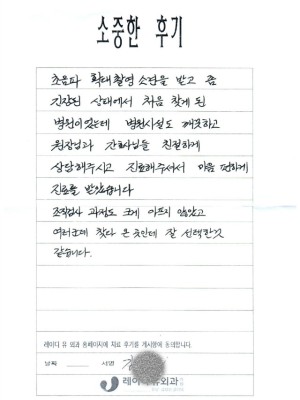 소중한 후기
초음파 확대촬영 소견을 받고 좀
긴장된 상태에서 처음 찾게 된
병원이었는데 병원시설도 깨끗하고
원장님과 간호사님들 친절하게
상담해주시고 진료해주셔서 마음 편하게
진료를 받았습니다
조직검사 과정도 크게 아프지 않았고
여러군데 찾다 온 곳인데 잘 선택한것
같습니다.
레이디 유 외과 홈페이지에 치료 후기를 게시함에 동의합니다.
날짜 서명
레이디유외과